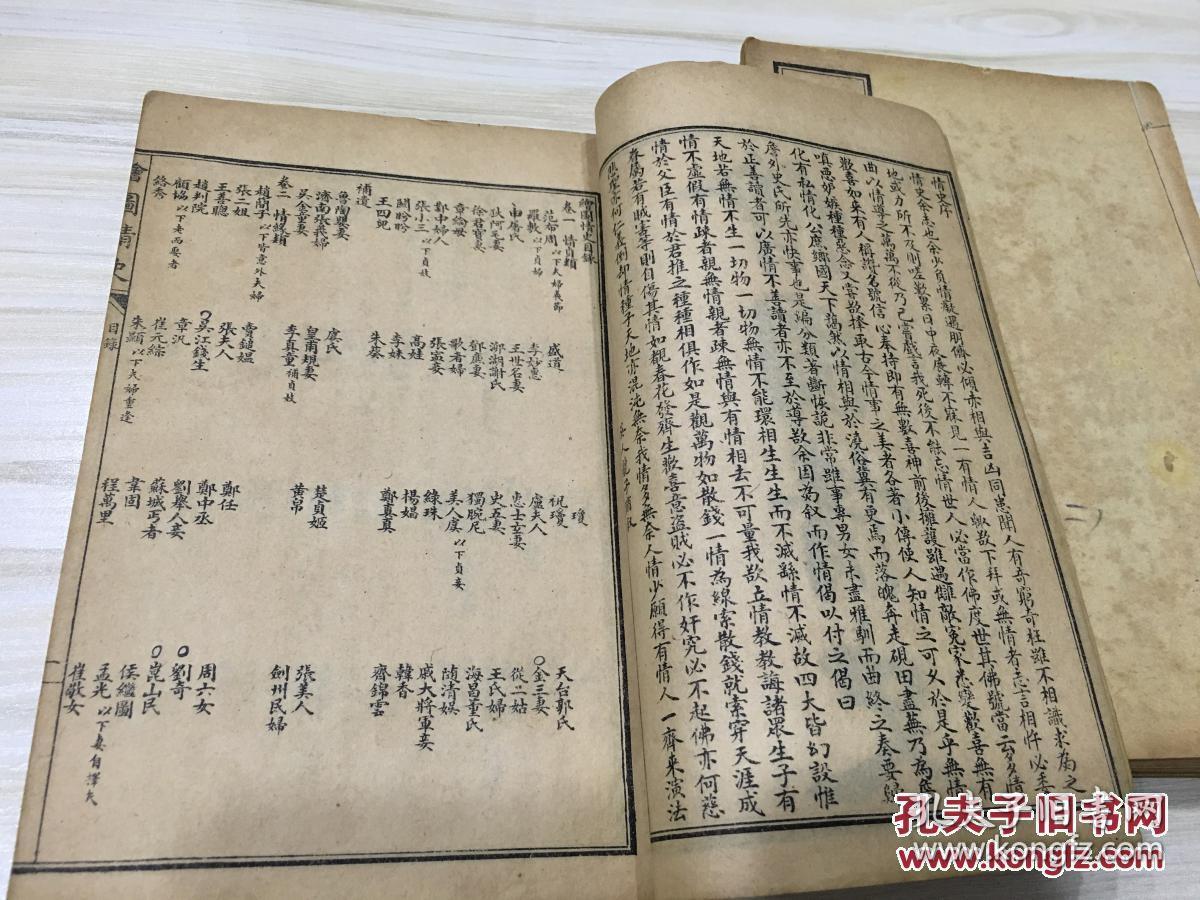 情史序
情史余志也余少負情癡遇朋儕必傾赤相與吉凶同患聞人有奇窮奇枉雖不相識求為之
地或力所不及則嗟歎累日中夜展轉不寐見一有情人輒欲下拜或無情者志言相忤必委
曲以情導之萬萬不從乃已嘗戲言我死後不能忘情世人必當作佛度世其佛號當云多情
歡喜如來有人稱讚名號信心奉持即有無數喜神前後擁護雖遇讎敵冤家悉變歡喜無有
嗔惡妒嫉種種惡念又嘗欲擇取古今情事之美者各著小傳使人知情之可久於是乎無情
化有私情化公庶鄉國天下藹然以情相與於澆俗冀有更焉而落魄奔走硯田盡蕪乃為
詹外史氏所先亦快事也是編分類著斷恢詭非常雖事專男女未盡雅馴而曲終之奏要歸
於正善讀者可以廣情不善讀者亦不至於導欲余因為叙而作情偈以付之偈曰
天地若無情不生一切物一切物無情不能環相生生生而不滅繇情不滅故四大皆幻設惟
情不虛假有情疎者親無情親者疎無情與有情相去不可量我欲立情教教誨諸眾生子有
情於父臣有情於君推之種種相俱作如是觀萬物如散錢一情為線索散錢就索穿天涯成
眷屬若有賊害等則自傷其情如覩春花發齊生歡喜意盜賊必不作奸宄必不起佛亦何慈
悲聖亦何仁義倒却情種子天地亦混沌無奈我情多無奈人情少願得有情人一齊來演法
吳人龍子猶叙
繪圖情史目錄
卷一 情貞類
范希周 以下夫婦義節 盛道 祝瓊 天台郭氏
羅敷 以下貞婦 李妙惠 盧夫人 金三妻
申屠氏 王世名妻 惠士玄妻 從二姑
狄阿毛妻 鄭湖謝氏 史五妻 王氏婦
徐君寶妻 鄧廉妻 獨腕尼 海昌董氏
章綸母 歌者婦 美人虞 以下貞妾 隨清娛
鄭中婦人 張寧妾 綠珠 戚大將軍妾
張小三 以下貞妓 高娃 楊娼 韓香
關盼盼 李妹 鄭真真 齊錦雲
王四兒 朱葵
補遺
魯陶嬰妻 盧氏 楚貞姬 張美人
濟南張義婦 皇甫規妻 黃帛 劍州民婦
吳金童妻 李真童 補貞妓
卷二 情緣類
趙簡子 以下皆意外夫婦 鄭任 周六女
張二姐 張夫人 鄭中丞 劉奇
王善聰 吳江錢生 劉舉人妾 崑山民
趙判院 章汎 蘇城丐者 侯繼圖
顧協 以下夫妻而晏者 崔元綜 韋固 孟光 以下妻自擇夫
絡秀 朱顯 以下夫婦重逢 程萬里 崔敬女
繪圖情史
目錄
一
二
孔夫子旧书网
www.kongfz.com